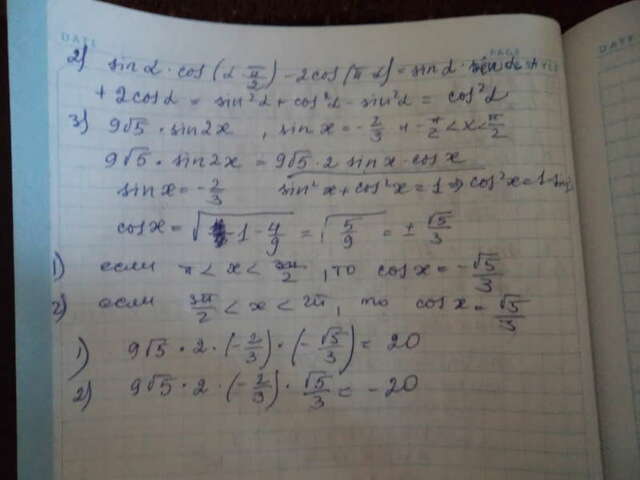 DATE
PAGE
DATE
2) sin α · cos (α π/2) − 2cos (π α) = sin α ·
+ 2cos α = sin²α + cos²α − sin²α = cos²α
3) 9√5 · sin2x , sin x = −2/3 и −π/2 < x < π/2
9√5 · sin2x = 9√5 · 2 sinx · cosx
sinx = −2/3 sin²x + cos²x = 1 ⇒ cos²x = 1 − sin
cosx = √(1 − 4/9) = √(5/9) = ± √5/3
1) если π < x < 3π/2 , то cosx = −√5/3
2) если 3π/2 < x < 2π , то cosx = √5/3
1) 9√5 · 2 · (−2/3) · (−√5/3) = 20
2) 9√5 · 2 · (−2/3) · √5/3 = −20